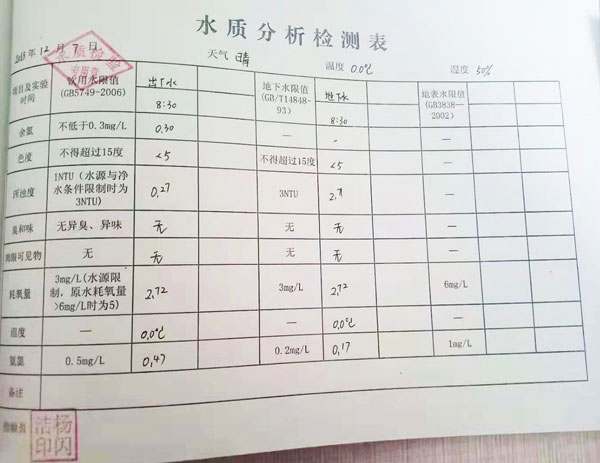 水质分析检测表
2018年12月7日 天气 晴 温度 0.0℃ 湿度 50%
水质检验
专用章
项目及实验时间 饮用水限值(GB5749-2006) 出厂水 8:30 地下水限值(GB/T14848-93) 地下水 8:30 地表水限值(GB3838—2002)
余氯 不低于0.3mg/L 0.30 — - —
色度 不得超过15度 <5 不得超过15度 <5 —
浑浊度 1NTU(水源与净水条件限制时为3NTU) 0.27 3NTU —
臭和味 无异臭、异味 无 无 无 —
肉眼可见物 无 无 无 无 —
耗氧量 3mg/L(水源限制,原水耗氧量>6mg/L时为5) 2.72 3mg/L 2.72 6mg/L
温度 — 0.0℃ — 0.0℃ —
氨氮 0.5mg/L 0.47 0.2mg/L 0.17 1mg/L
备注
杨闪洁印